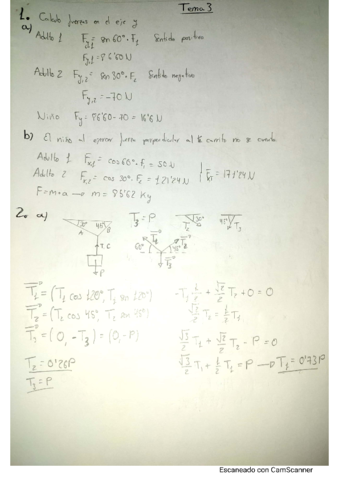 Tema 3
1. Calculo fuerzas en el eje y
a)
Adulto 1 F_y,1 = sin 60º · F₁ Sentido positivo
F_y,1 = 86'60 N
Adulto 2 F_y,2 = sin 30º · F₂ Sentido negativo
F_y,2 = -70 N
Niño F_y = 86'60 - 70 = 16'6 N
b) El niño al ejercer fuerza perpendicular al carrito no se cuenta
Adulto 1 F_x,1 = cos 60º · F₁ = 50 N
Adulto 2 F_x,2 = cos 30º · F₂ = 121'24 N
F_T = 171'24 N
F = m·a → m = 85'62 Kg
2. a)
T₃ = P
T₁ = (T₁ cos 120º, T₁ sin 120º)
T₂ = (T₂ cos 45º, T₂ sin 45º)
T₃ = (0, -T₃) = (0, -P)
-T₁ 1/2 + √2/2 T₂ + 0 = 0
√2/2 T₂ = 1/2 T₁
√3/2 T₁ + √2/2 T₂ - P = 0
√3/2 T₁ + 1/2 T₁ = P → T₁ = 0'73 P
T₃ = P
Escaneado con CamScanner